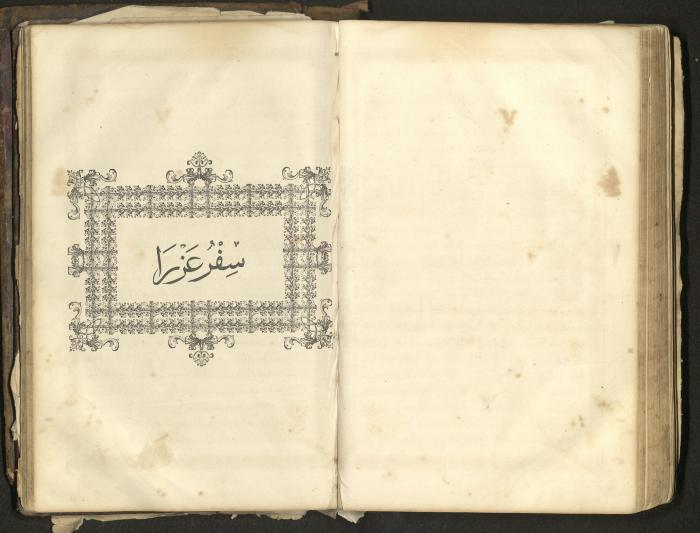 سِفْرُ عَزْرَا